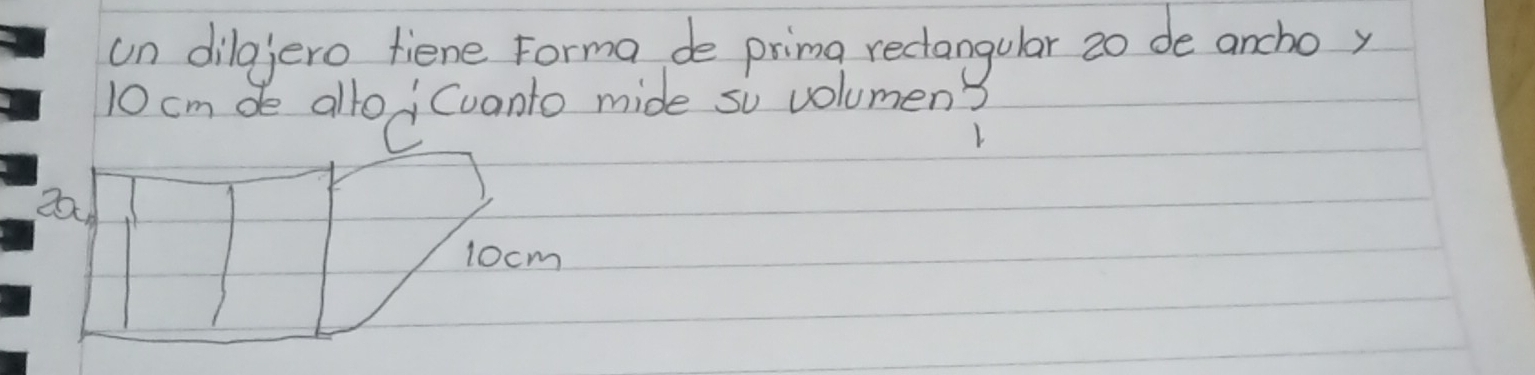 un dilajero tiene Forma de prima rectangular 20 de ancho y
10 cm de alto ¿Cuanto mide su volumen?
10cm